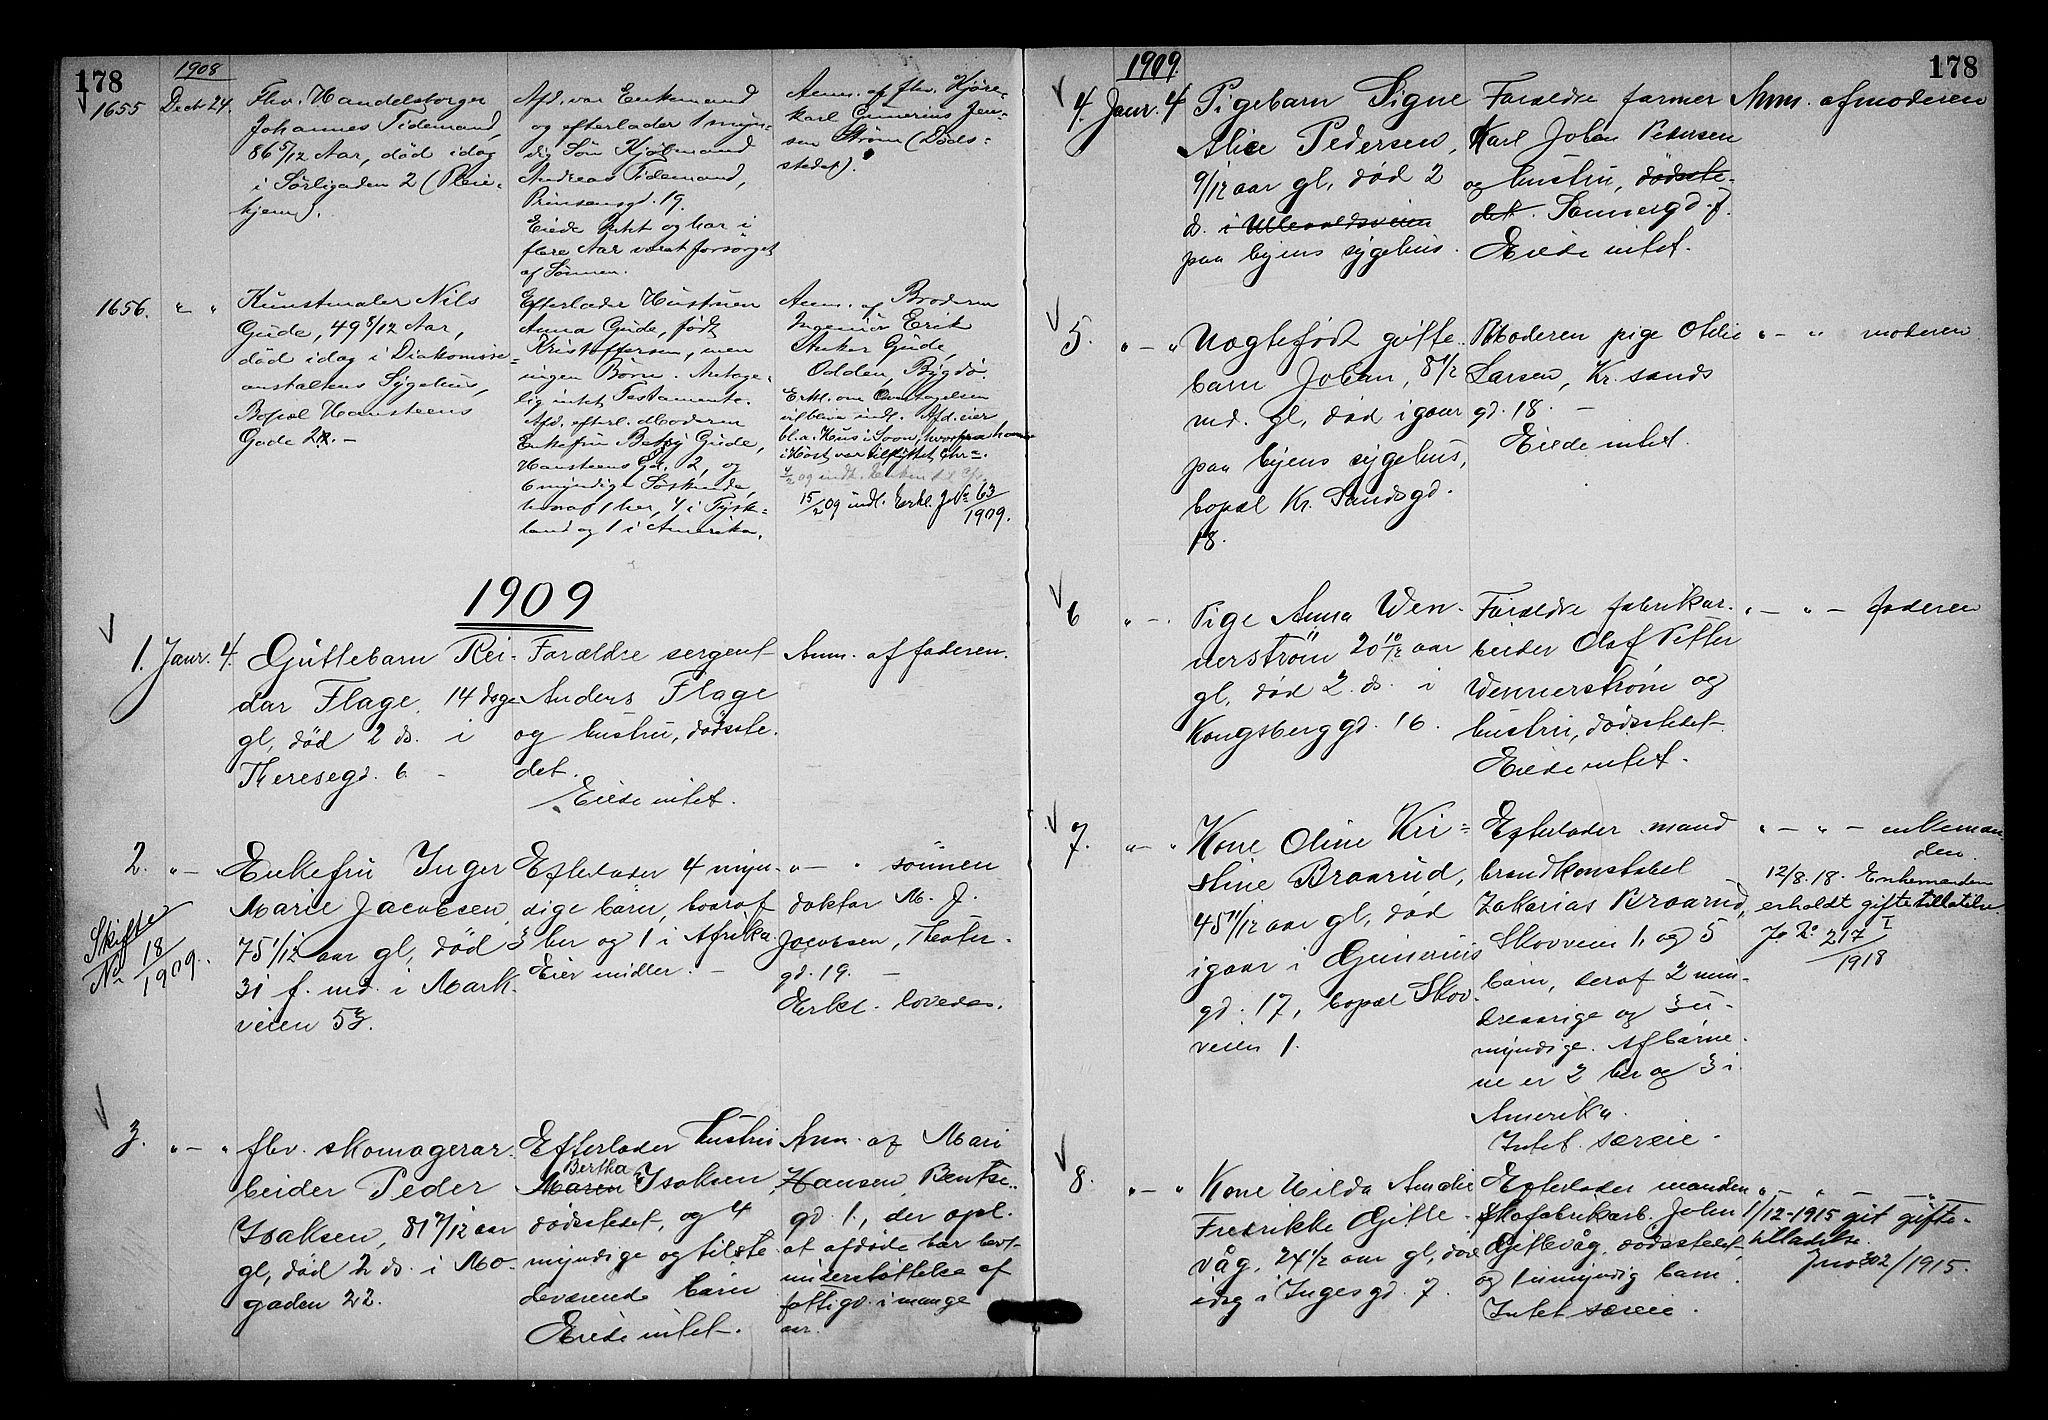 178
1908
1655 Decbr 24.
Fhv. Handelsborger
Johannes Tidemand,
86 5/12 Aar, død idag
i Sørligaden 2 (Pleie-
hjem).
Afd. var Enkemand
og efterlader 1 myn-
dig Søn Kjøbmand
Andreas Tidemand,
Prinsensgd. 19.
Eiede intet og har i
flere Aar været forsørget
af Sønnen.
Anm. af fhv. Kjøre-
karl Gunerius Jen-
sen Strøm (Døds-
stedet).
1656. " "
Kunstmaler Nils
Gude, 49 8/12 Aar,
død idag i Diakonisse-
anstaltens Sygehus,
Bopæl Hansteens
Gade 2. -
Efterlader Hustruen
Anna Gude, født
Kristoffersen, men
ingen Børn. Antage-
lig intet Testamente.
Afd. efterl. Moderen
Enkefru Betsy Gude,
Hansteens Gd. 2, og
6 myndige Søskende,
hvoraf 1 her, 4 i Tysk-
land og 1 i Amerika.
Anm. af Broderen
Ingeniør Erik
Anker Gude,
Odden, Bygdø.
Erkl. om Overtagelsen
vil blive indl. Afd. eier
bl.a. Hus i Soon, hvorfra han
i Høst var tilflyttet
15/2 09 indl. Erkl. J No 63/1909.
1909
1. Janr. 4.
Guttebarn Rei-
dar Flage, 14 dage
gl, død 2 ds. i
Theresegd. 6 -
Forældre sergent
Anders Flage
og hustru, dødsste-
det.
Eiede intet.
Anm. af faderen.
2. " - "
Skifte
No 18/1909.
Enkefru Inger
Marie Jacobsen,
75 1/12 aar gl, død
31 f. md. i Mark-
veien
Efterlader 4 myn-
dige børn, hvoraf
3 her og 1 i Afrika.
Eier midler. -
" - " sønnen
doktor M. J.
Jacobsen, Theater-
gd. 19. -
Erkl. lovedes.
3. " - "
fhv. skomagerar-
beider Peder
Isaksen, 81 7/12 aar
gl, død 2 ds. i Mo-
gaden 22.
Efterlader hustru
Bertha
Maren Isaksen,
dødsstedet, og 4
myndige og tilste-
deværende børn
Eiede intet.
Anm. af Mari
Hansen, Bentse-
gd. 1, der opl.
at afdøde har havt
understøttelse af
fattigv. i mange
aar.
1909.
178
4. Janr. 4
Pigebarn Signe
Alice Pedersen,
9/12 aar gl, død 2
ds. i Ullevoldsveien
paa byens sygehus.
Forældre former
Karl Johan Pedersen
og hustru, dødsste-
det. Sannergd. 7.
Eiede intet.
Anm. af moderen
5. " - "
Uægtefødt gutte-
barn Johan, 8 1/2
md. gl, død igaar
paa byens sygehus,
bopæl Kr. Sandsgd.
18.
Moderen pige Otilie
Larsen, Kr. sands
gd. 18. -
Eiede intet.
" - " moderen
6 " - "
Pige Anna Wen-
nerstrøm 20 10/12 aar
gl, død 2 ds. i
Kongsberggd. 16.
Forældre fabrikar-
beider Olof Petter
Wennerstrøm og
hustru, dødsstedet.
Eiede intet.
" - " - faderen
7. " - "
Kone Oline Kri-
stine Braarud,
45 11/12 aar gl, død
igaar i Gunerius
gd. 17, bopæl Skov-
veien 1.
Efterlader mand
brandkonstabel
Zakarias Braarud,
Skovveien 1, og 5
børn, deraf 2 min-
dreaarige og 3 u-
myndige. Af børne-
ne er 2 her og 3 i
Amerika.
Intet særeie.
" - " - enkeman-
den.
12/8. 18. Enkemanden
erholdt giftetilladelse
J No 217 I/1918
8. " - "
Kone Hilda Amalie
Fredrikke Gitle-
våg, 24 1/2 aar gl, død
idag i Ingesgd. 7.
Efterlader manden
skofabrikarb. John
Gitlevåg, dødsstedet
og 1 umyndig barn.
Intet særeie.
" - " - "
1/12-1915 git gifte-
tilladelse.
Jno 302/1915.